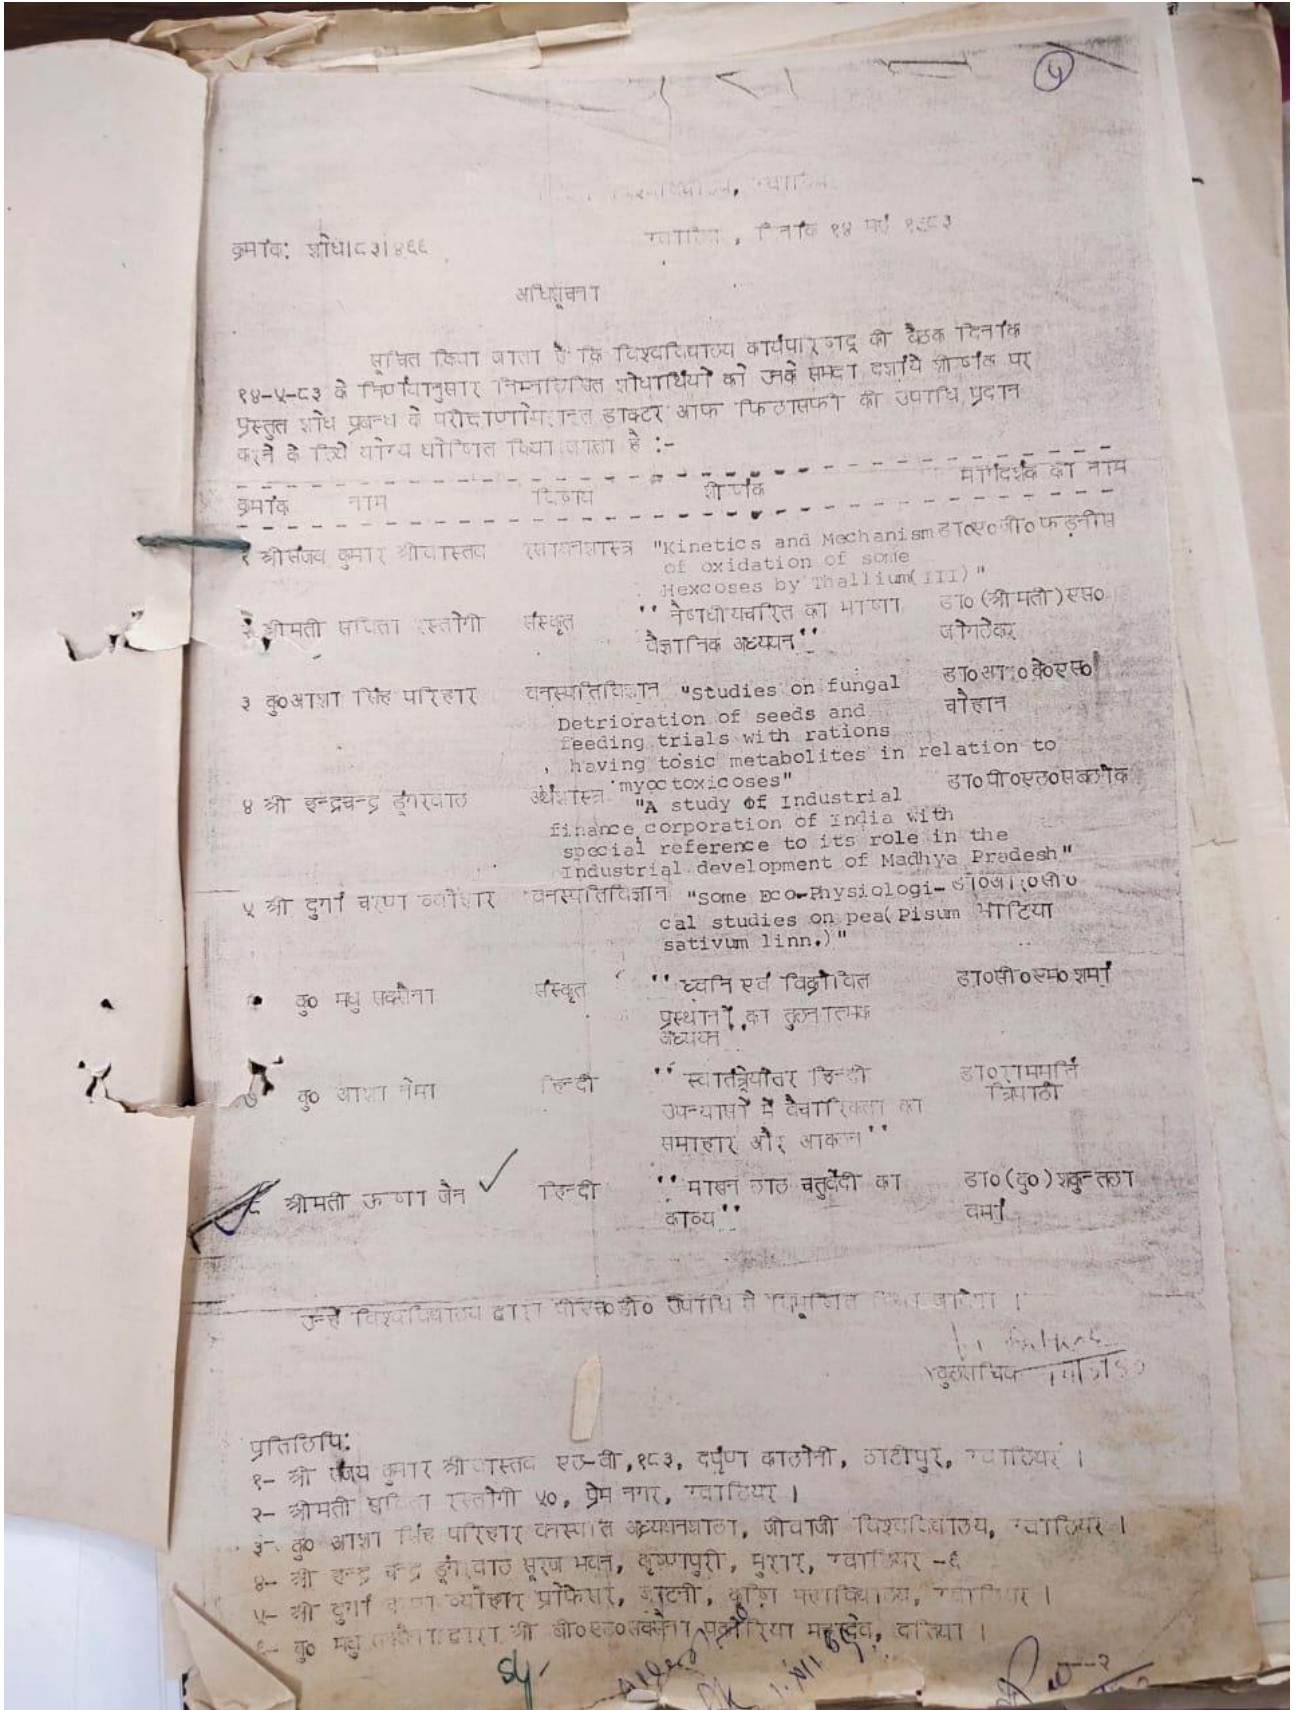 ५
विश्वविद्यालय, ग्वालियर
ग्वालियर, दिनांक १४ मई १९८३
क्रमांक: शोध।८३।४६६
अधिसूचना
सूचित किया जाता है कि विश्वविद्यालय कार्यपरिषद् की बैठक दिनांक
१४-५-८३ के निर्णयानुसार निम्नलिखित शोधार्थियों को उनके समक्ष दर्शाये शीर्षक पर
प्रस्तुत शोध प्रबन्ध के परीक्षाणोपरान्त डाक्टर आफ फिलासफी की उपाधि प्रदान
करने के लिये योग्य घोषित किया जाता है :-
क्रमांक नाम विषय शीर्षक मार्गदर्शक का नाम
१ श्री संजय कुमार श्रीवास्तव रसायनशास्त्र "Kinetics and Mechanism डा०ए०जी०फड़नीस
of oxidation of some
Hexcoses by Thallium(III)"
२ श्रीमती सविता रस्तोगी संस्कृत '' नैषधीयचरित का भाषा डा० (श्रीमती) एस०
वैज्ञानिक अध्ययन'' जोगलेकर
३ कु०आशा सिंह परिहार वनस्पतिविज्ञान "Studies on fungal डा०आर०के०एस०
Detrioration of seeds and चौहान
feeding trials with rations
having tosic metabolites in relation to
myoctoxicoses"
४ श्री इन्द्रचन्द्र डूंगरवाल अर्थशास्त्र "A study of Industrial डा०पी०एल०सबलोक
finance corporation of India with
special reference to its role in the
Industrial development of Madhya Pradesh"
५ श्री दुर्गा चरण व्योहार वनस्पतिविज्ञान "Some Eco-Physiologi- डा०आर०सी०
cal studies on pea(Pisum भाटिया
sativum linn.)"
कु० मधु सक्सैना संस्कृत '' ध्वनि एवं विक्रोवित डा०सी०एम० शर्मा
प्रस्थानों का तुलनात्मक
अध्ययन''
७ कु० आशा नेमा हिन्दी '' स्वातंत्र्योत्तर हिन्दी डा०राममूर्ति
उपन्यासों में वैचारिकता का त्रिपाठी
समाहार और आकलन''
८ श्रीमती ऊषा जैन हिन्दी '' माखन लाल चतुर्वेदी का डा० (कु०) शकुन्तला
काव्य'' वर्मा
उन्हें विश्वविद्यालय द्वारा पीएच०डी० उपाधि से विभूषित किया जावेगा ।
कुलसचिव
प्रतिलिपि:
१- श्री संजय कुमार श्रीवास्तव एल-बी,१८३, दर्पण कालोनी, ठाटीपुर, ग्वालियर ।
२- श्रीमती सविता रस्तोगी ५०, प्रेम नगर, ग्वालियर ।
३- कु० आशा सिंह परिहार वनस्पति अध्ययनशाला, जीवाजी विश्वविद्यालय, ग्वालियर ।
४- श्री इन्द्र चन्द्र डूंगरवाल सूरज भवन, कृष्णापुरी, मुरार, ग्वालियर -६
५- श्री दुर्गा चरण व्योहार प्रोफेसर, बाटनी, कृषि महाविद्यालय, ग्वालियर ।
६- कु० मधु सक्सैना द्वारा श्री बी०एल०सक्सैना पकोरिया महादेव, दतिया ।
---२